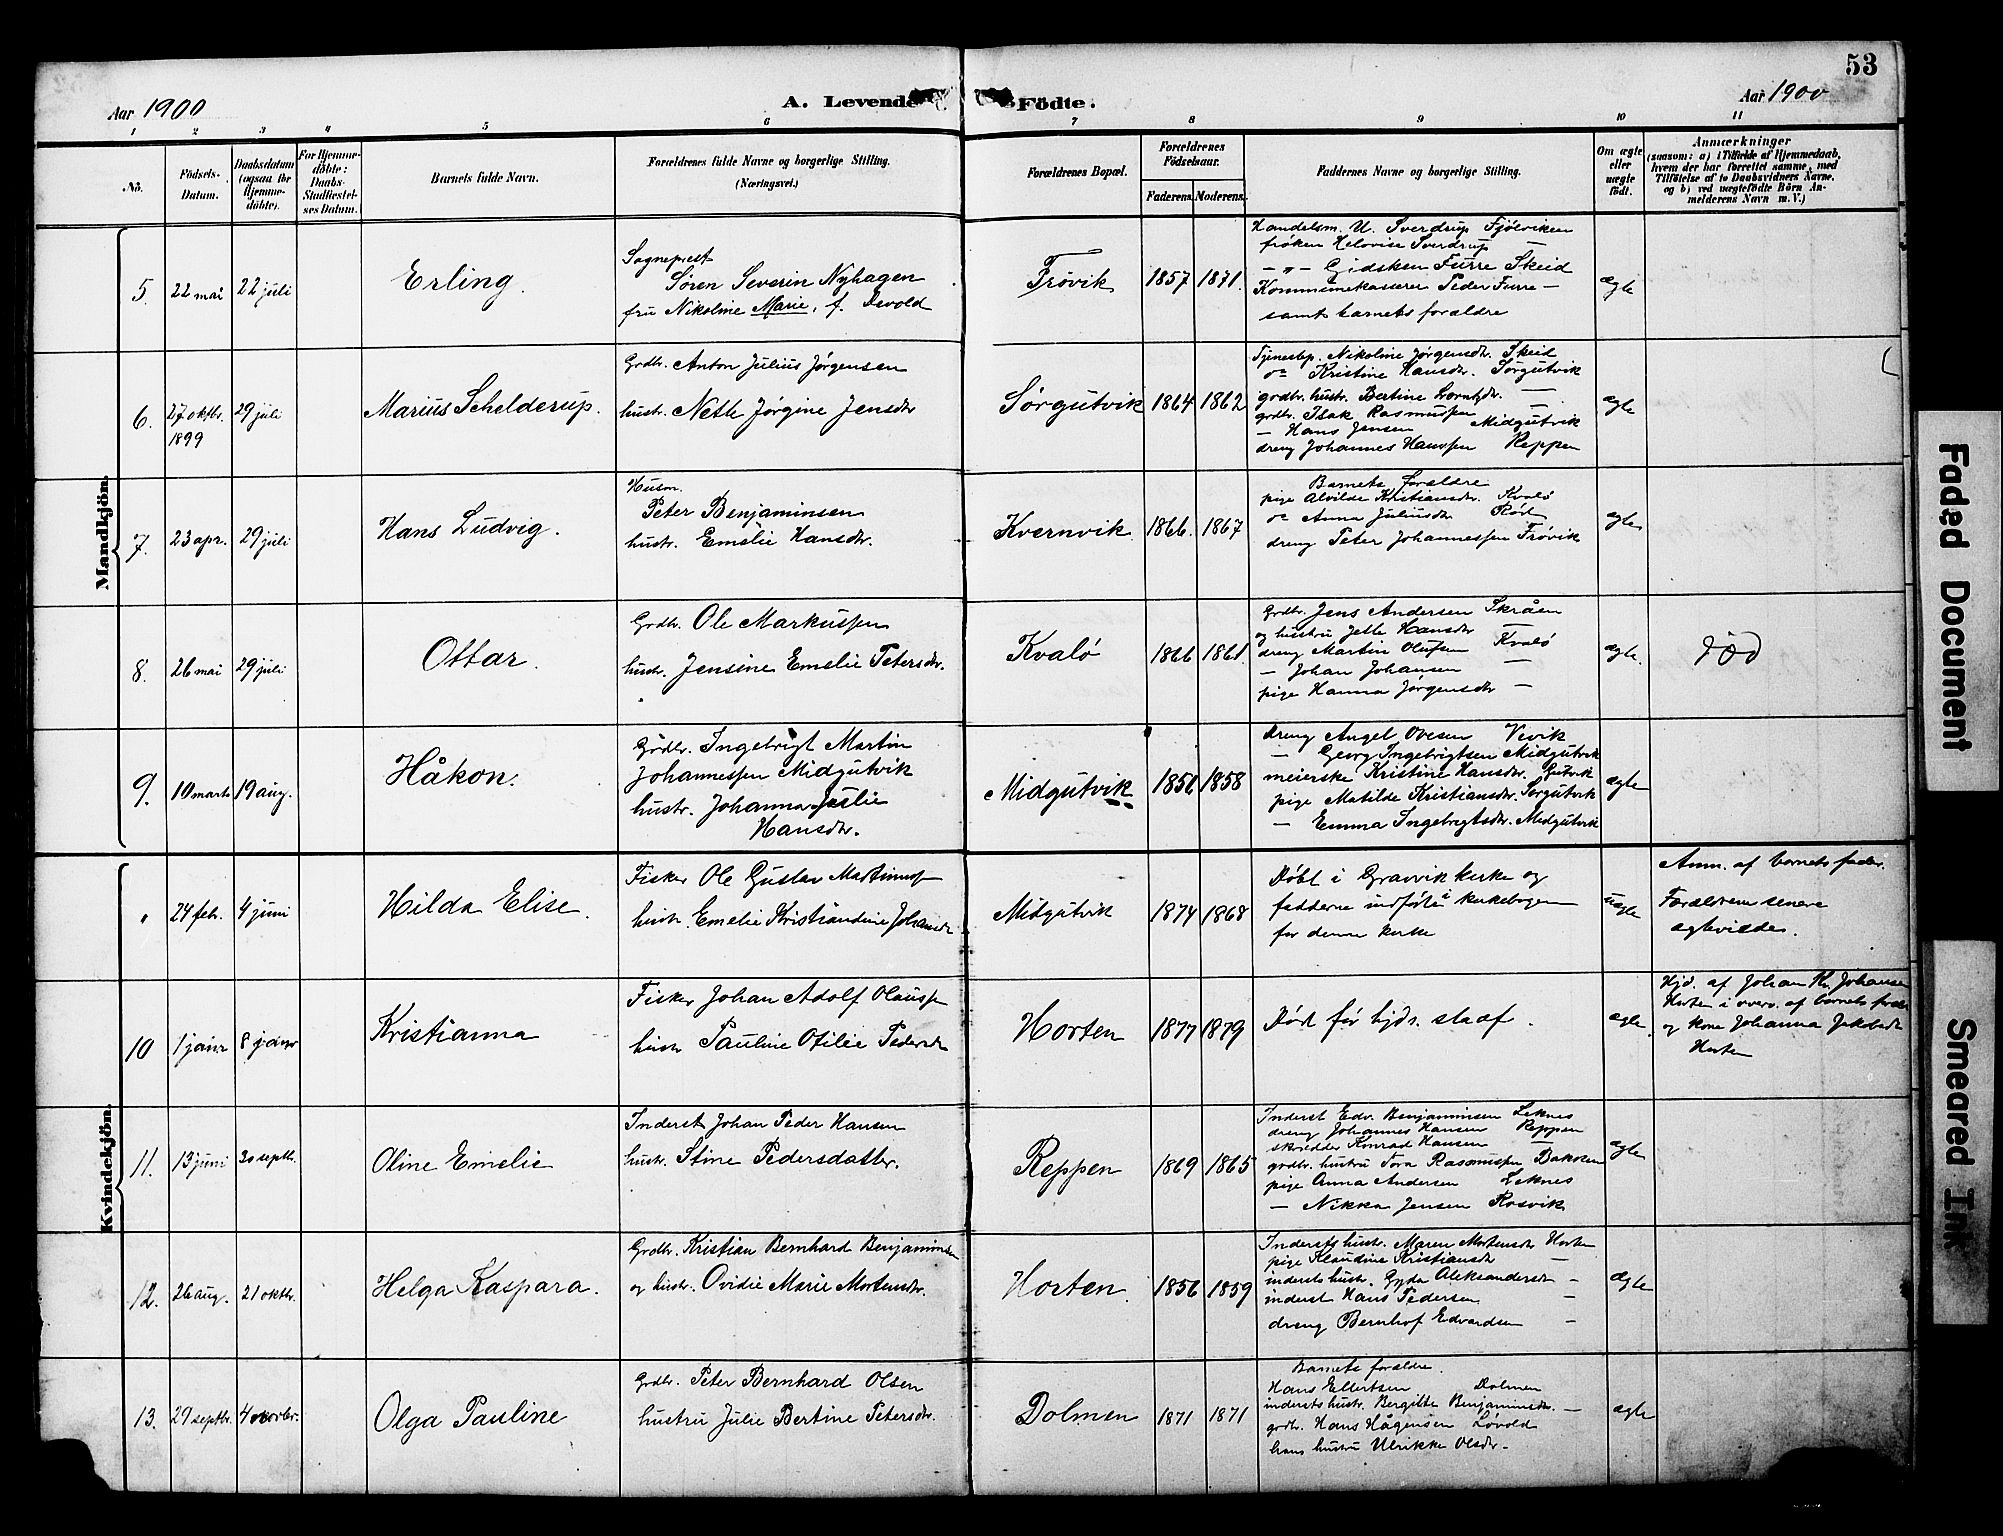 53
Aar 1900
A. Levende Födte.
Aar 1900
1 2 3 4 5 6 7 8 9 10 11
No.
Födsels-
Datum.
Daabsdatum
(ogsaa for
Hjemme-
döbte).
For Hjemme-
döbte:
Daabs-
Stadfæstel-
ses Datum.
Barnets fulde Navn.
Forældrenes fulde Navne og borgerlige Stilling.
(Næringsvei.)
Forældrenes Bopæl.
Forældrenes
Födselsaar.
Faderens. Moderens.
Faddernes Navne og borgerlige Stilling.
Om ægte
eller
uægte
födt.
Anmærkninger
(saasom: a) i Tilfælde af Hjemmedaab,
hvem der har forrettet samme, med
Tilföielse af to Daabsvidners Navne.
og b) ved uægtefödte Börn An-
melderens Navn m. V.)
Mandkjön.
5. 22 mai 22 juli
Erling.
Sogneprest
Søren Severin Nyhagen
fru Nikoline Marie, f. Devold
Frøvik
1857 1871.
Handelsm. U. Sverdrup Fjølviken
frøken Helovise Sverdrup —
— " — Gidsken Furre Skeid
Kommunekasserer Peder Furre —
samt barnets forældre
ægte
6. 27 oktbr. 1899 29 juli
Marius Schelderup.
Grdbr. Anton Julius Jørgensen
hustr. Nette Jørgine Jensdtr
Sørgutvik
1864 1862
Tjenestep. Nikoline Jørgensdtr. Skeid
do Kristine Hansdtr. Sørgutvik
grdbr. hustr. Bertine —
grdbr. Isak Rasmussen —
— Hans Jensen Midgutvik
dreng Johannes Hanssen Reppen
ægte
7. 23 apr. 29 juli
Hans Ludvig.
Husm.
Peter Benjaminsen
hustr. Emelie Hansdtr.
Kvernvik
1866. 1867
Barnets forældre
pige Alvilde Kristiansdtr. Kvalø
do Anna Juliusdtr Rød
dreng Peter Johannessen Frøvik
ægte
8. 26 mai 29 juli
Ottar.
Grdbr. Ole Markussen
hustr. Jensine Emelie Petersdtr.
Kvalø
1866 1861
Grdbr. Jens Andersen Skråen
og hustru Jette Hansdtr —
dreng Martin Olufsen Kvalø
— Johan Johansen —
pige Hanna Jørgensdtr —
ægte.
død
9. 10 marts 19 aug.
Håkon.
Grdbr. Ingebrigt Martin
Johannessen Midgutvik
hustr. Johanna Juslie
Hansdtr.
Midgutvik
1856 1858
Dreng Angel Ovesen Vevik
— Georg Ingebrigtsen Midgutvik
meierske Kristine Hansdtr. Gutvik
pige Matilde Kristiansdtr. Sørgutvik
— Emma Ingebrigtsdtr. Midgutvik
ægte
Kvindekjön.
" 24 febr. 4 juni
Hilda Elise.
Fisker Ole Gustav Martinus
hustr. Emelie Kristiandine Johansdtr
Midgutvik
1874 1868
Døbt i Gravvik kirke og
fadderne indførte i kirkebogen
for denne kirke
uægte
Anm. af barnets fader.
Forældrene senere
ægteviede.
10 1 janr 8 janr
Kristianna
Fisker Johan Adolf Olaus
hustr Pauline Otilie Pedersdtr
Horten
1877 1879
Død før hjd. staaf.
ægte
Hjd. af Johan Kr. Johansen
Horten i overv. af barnets fader
og kone Johanna Jakobsdtr
Horten
11. 13 juni 30 septbr.
Oline Emelie
Inderst Johan Peder Hansen
hustr. Stine Pedersdatter.
Reppen
1869 1865
Inderst Edv. Benjaminsen Leknes
dreng Johannes Hansen Reppen
skrædder Konrad Hansen —
grdbr. hustru Tora Rasmussen Bakken
pige Anna Andersen Leknes
— Nikka Jensen Rosvik
ægte
12. 26 aug. 21 oktbr.
Helga Kaspara.
Grdbr. Kristian Bernhard Benjaminsen
og hustr. Ovidie Marie Mortensdtr.
Horten.
1856 1859
Inderstshustr. Maren Mortensdtr Horten
pige Klaudine Kristiansdtr —
inderstshustr. Gyda Aleksandersdtr —
inderst Hans Pedersen —
dreng Bernhof Edvardsen —
ægte
13. 29 septbr. 4 novbr.
Olga Pauline
Grdbr. Peter Bernhard Olsen
hustru Julie Bertine Petersdtr.
Dolmen
1871 1871
Barnets forældre.
Hans Ellertsen Dolmen
inderstshustr. Bergitte Benjaminsdtr. —
grdbr. Hans Hågensen Løvold
hans hustru Ulrikke Olsdtr. —
ægte
Faded Document
Smeared Ink